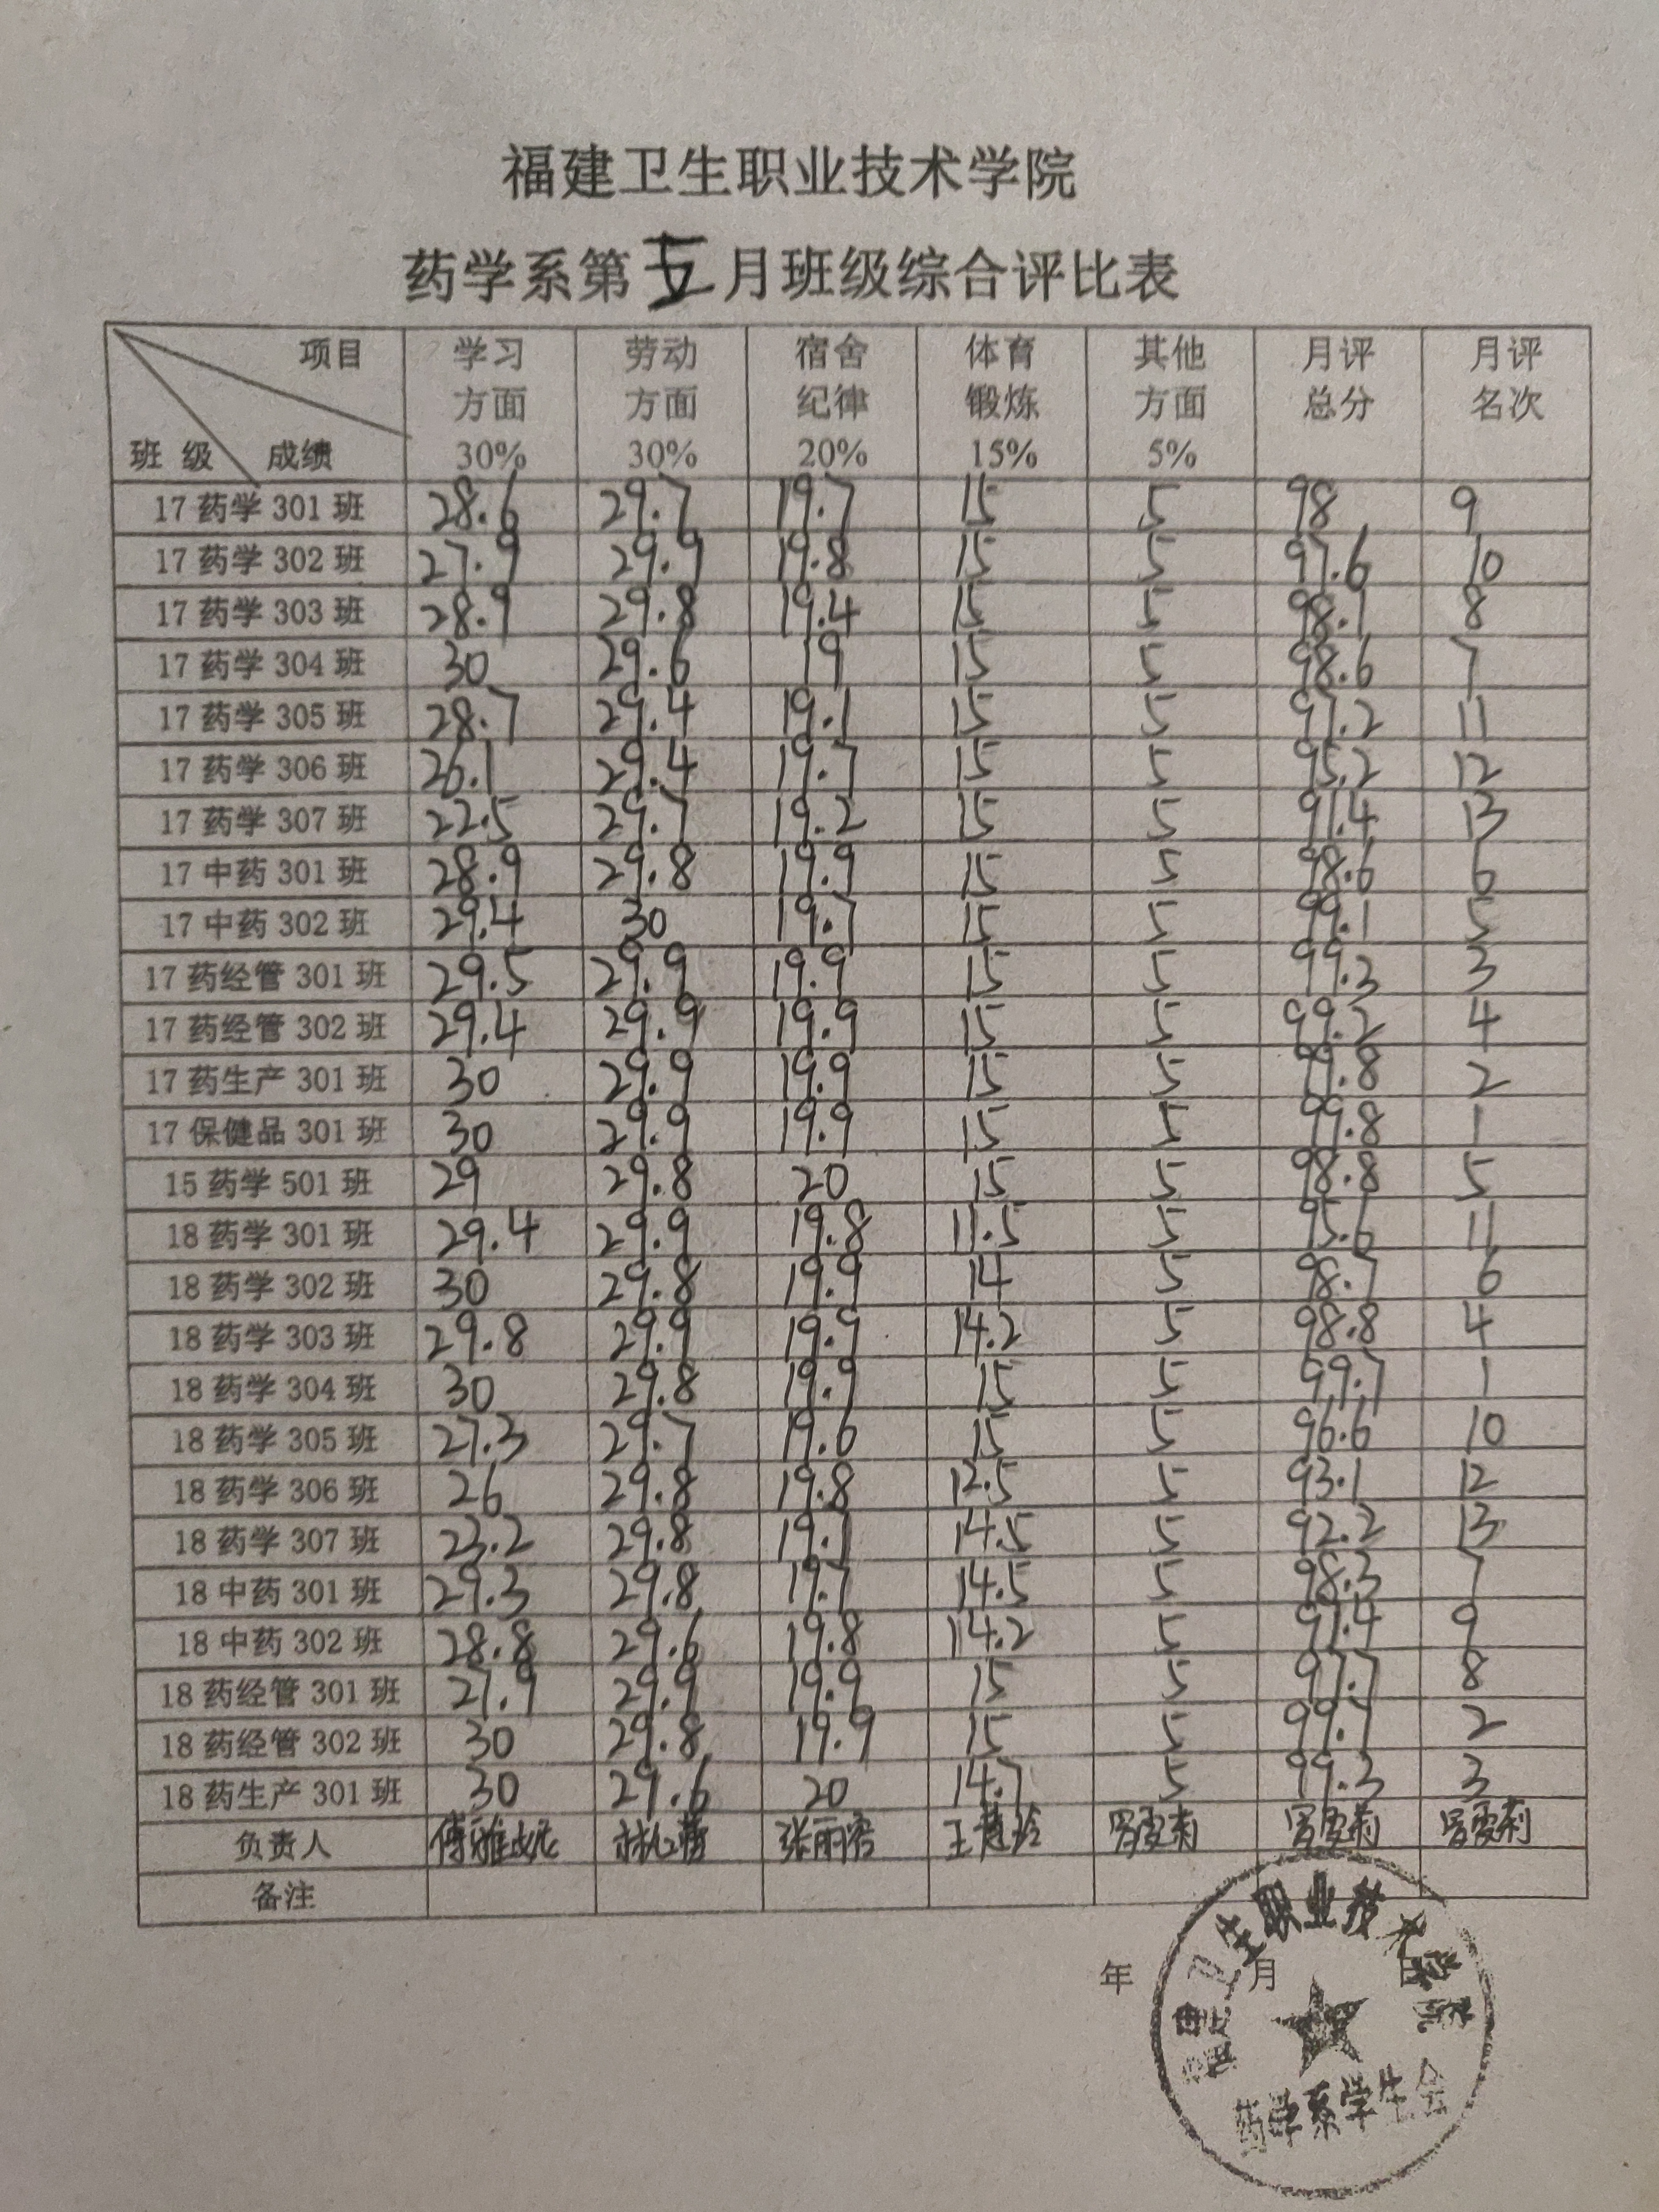 福建卫生职业技术学院
药学系第五月班级综合评比表
项目 学习 劳动 宿舍 体育 其他 月评 月评
方面 方面 纪律 锻炼 方面 总分 名次
班级 成绩 30% 30% 20% 15% 5%
17药学301班 28.6 29.7 19.7 15 5 98 9
17药学302班 27.9 29.9 19.8 15 5 97.6 10
17药学303班 28.9 29.8 19.4 15 5 98.1 8
17药学304班 30 29.6 19 15 5 98.6 7
17药学305班 28.7 29.4 19.1 15 5 97.2 11
17药学306班 26.1 29.4 19.7 15 5 95.2 12
17药学307班 22.5 29.7 19.2 15 5 91.4 13
17中药301班 28.9 29.8 19.9 15 5 98.6 6
17中药302班 29.4 30 19.7 15 5 99.1 5
17药经管301班 29.5 29.9 19.9 15 5 99.3 3
17药经管302班 29.4 29.9 19.9 15 5 99.2 4
17药生产301班 30 29.9 19.9 15 5 99.8 2
17保健品301班 30 29.9 19.9 15 5 99.8 1
15药学501班 29 29.8 20 15 5 98.8 5
18药学301班 29.4 29.9 19.8 11.5 5 95.6 11
18药学302班 30 29.8 19.9 14 5 98.7 6
18药学303班 29.8 29.9 19.9 14.2 5 98.8 4
18药学304班 30 29.8 19.9 15 5 99.7 1
18药学305班 27.3 29.7 19.6 15 5 96.6 10
18药学306班 26 29.8 19.8 12.5 5 93.1 12
18药学307班 23.2 29.8 19.1 14.5 5 92.2 13
18中药301班 29.3 29.8 19.7 14.5 5 98.3 7
18中药302班 28.8 29.6 19.8 14.2 5 97.4 9
18药经管301班 27.9 29.9 19.9 15 5 97.7 8
18药经管302班 30 29.8 19.9 15 5 99.7 2
18药生产301班 30 29.6 20 14.7 5 99.3 3
负责人
备注
年 月 日
福建卫生职业技术学院
药学系学生会